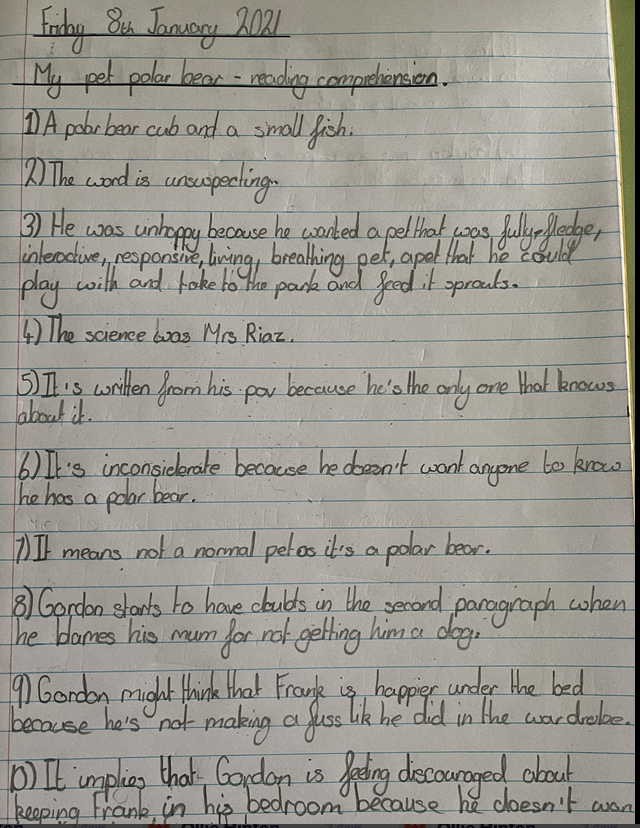 Friday 8th January 2021
My pet polar bear - reading comprehension.
1) A polar bear cub and a small fish.
2) The word is unsuspecting.
3) He was unhappy because he wanted a pet that was fully-fledge,
interactive, responsive, living, breathing pet, a pet that he could
play with and take to the park and feed it sprouts.
4) The science was Mrs Riaz.
5) It's written from his pov because he's the only one that knows
about it.
6) It's inconsiderate because he doesn't want anyone to know
he has a polar bear.
7) It means not a normal pet as it's a polar bear.
8) Gordon starts to have doubts in the second paragraph when
he blames his mum for not getting him a dog.
9) Gordon might think that Frank is happier under the bed
because he's not making a fuss like he did in the wardrobe.
10) It implies that Gordon is feeling discouraged about
keeping Frank in his bedroom because he doesn't wan